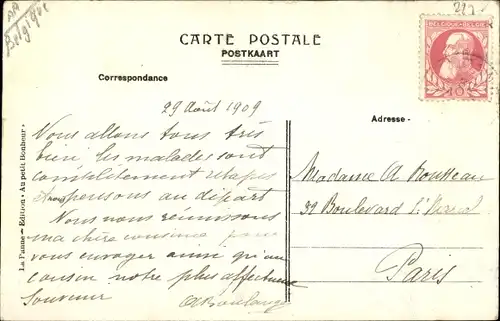 Belgique
CARTE POSTALE
POSTKAART
Correspondance
BELGIQUE-BELGIË
10
Adresse -
La Panne - Edition - Au petit Bonheur.
29 Août 1909
Nous allons tous très
bien les malades sont
complètement
et nous pensons au départ
Nous nous réunissons
ma chère cousine pour
vous envoyer ainsi qu'au
cousin notre plus affectueux
Souvenir
Madame A. Rousseau
32 Boulevard
Paris